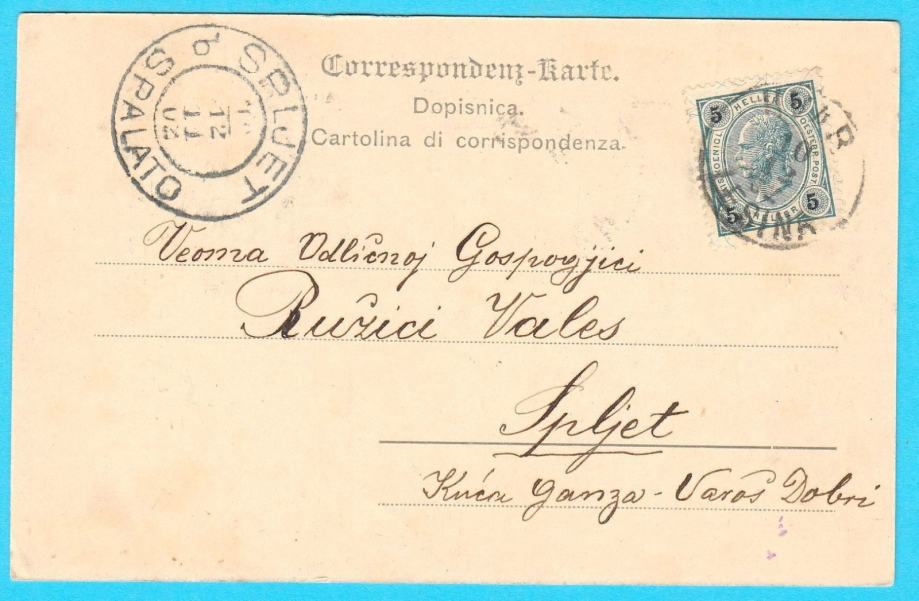 Correspondenz-Karte.
Dopisnica.
Cartolina di corrispondenza.
SPLJET
SPALATO
12
11
02
5 HELLER 5
5 HELLER 5
OESTERR. POST
Veoma Odličnoj Gospogjici
Ružici Vales
Spljet
Kuća Ganza - Varoš Dobri